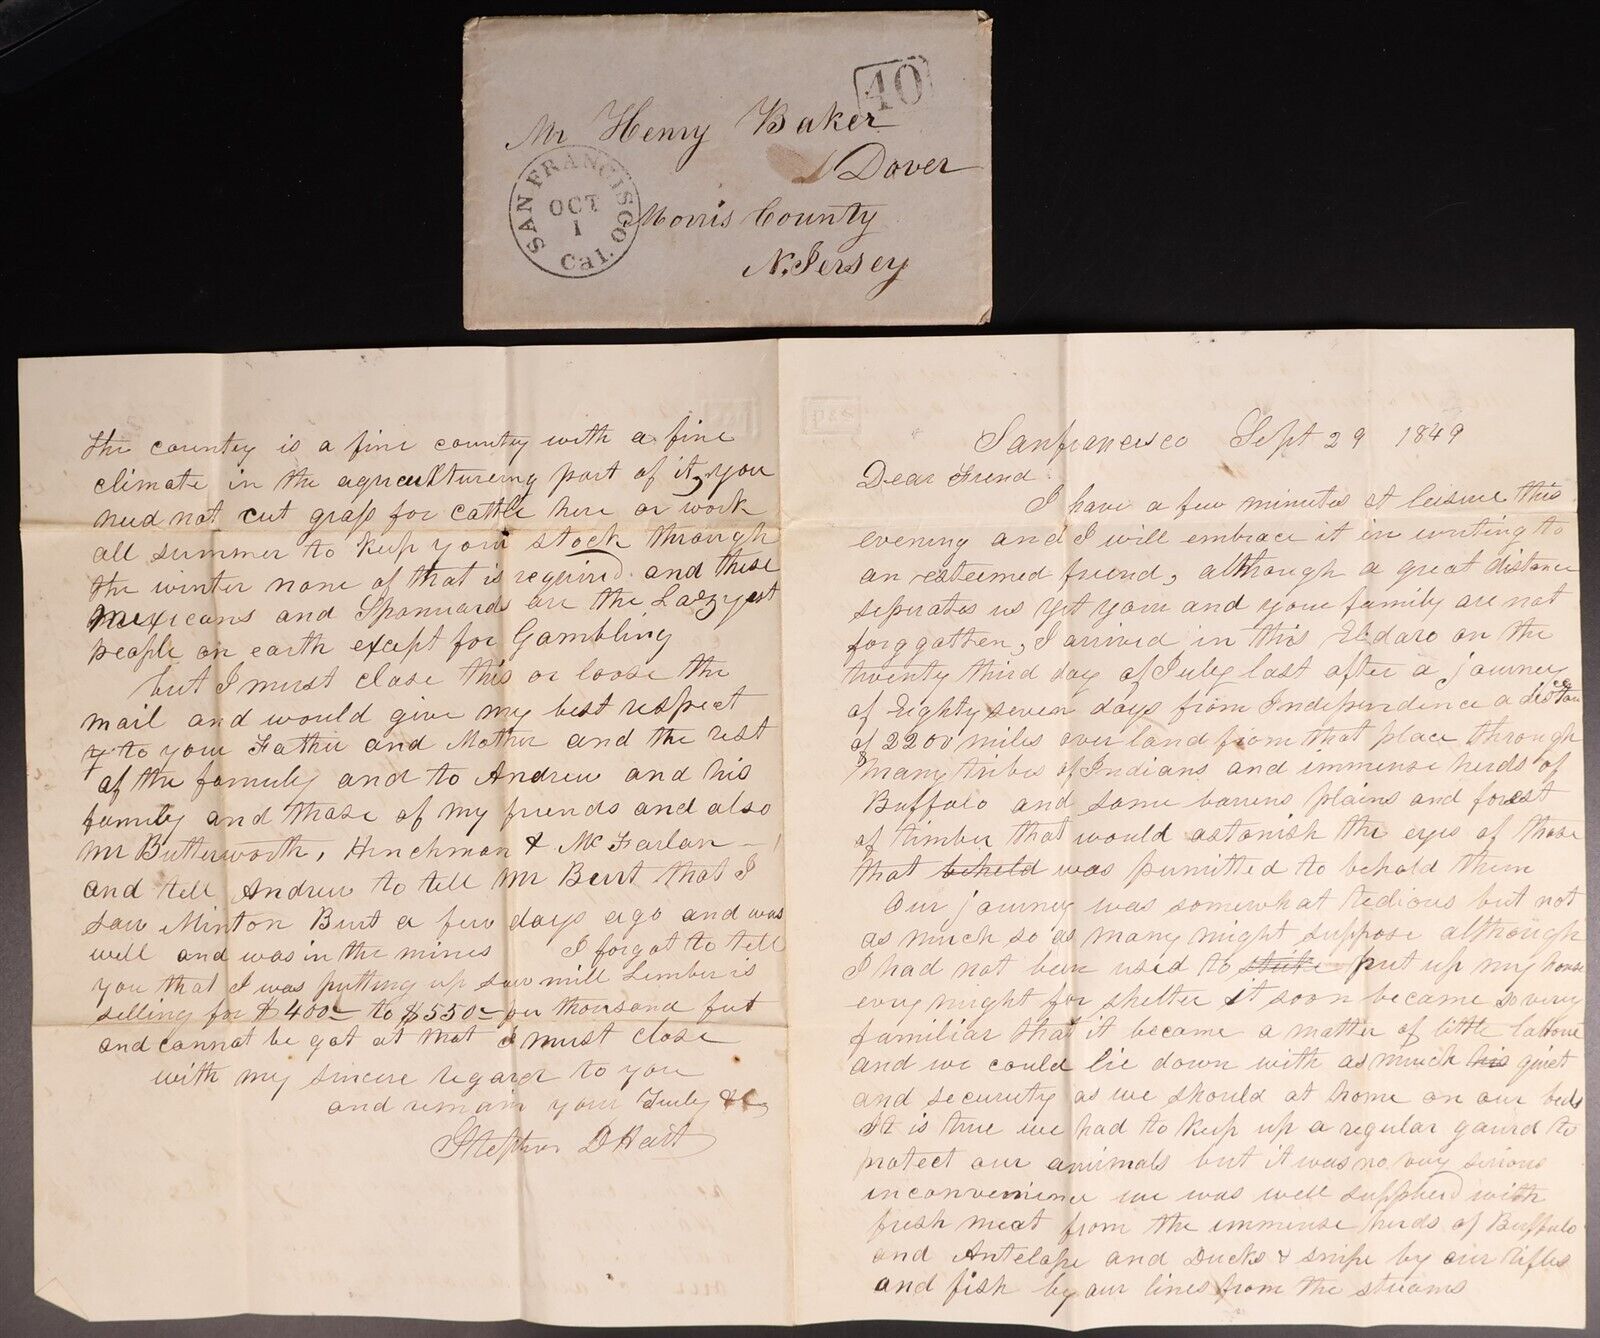 40
Mr Henry Baker
Dover
Morris County
N. Jersey
SAN FRANCISCO Cal.
OCT
1
the country is a fine country with a fine
climate in the agriculturing part of it, you
need not cut grass for cattle here or work
all summer to keep your stock through
the winter none of that is required and these
Mexicans and Spanuards are the Lazyest
people on earth except for Gambling
but I must close this or loose the
mail and would give my best respect
to your Father and Mother and the rest
of the famuly and to Andrew and his
family and those of my friends and also
Mr Butterworth, Hinchman & McFarlan
and tell Andrew to tell Mr Burt that I
saw Minton Burt a few days ago and was
well and was in the mines I forgot to tell
you that I was putting up saw mill Lumber is
selling for $400 to $550 per thousand feet
and cannot be got at that I must close
with my sincere regard to you
and remain your Truly &c
Stephen D Hart
Sanfrancisco Sept 29 1849
Dear Friend
I have a few minutes at leisure this
evening and I will embrace it in writing to
an esteemed friend, although a great distance
seperates us yet your and your family are not
forggotten, I arrived in this Eldaro on the
twenty third day of July last after a journey
of Eighty seven days from Independence a distance
of 2200 miles over land from that place through
many tribes of Indians and immense herds of
Buffalo and some barrens plains and forest
of timber that would astonish the eyes of those
that beheld was permitted to behold them
Our journey was somewhat tedious but not
as much so as many might suppose although
I had not been used to put up my house
every night for shelter it soon became so very
familiar that it became a matter of little labour
and we could lie down with as much his quiet
and security as we should at home on our beds
It is true we had to keep up a regular gaurd to
protect our animals but it was no very serious
inconvenience we was well supplied with
fresh meat from the immense herds of Buffalo
and Antelope and Ducks & snipe by our rifles
and fish by our lines from the streams